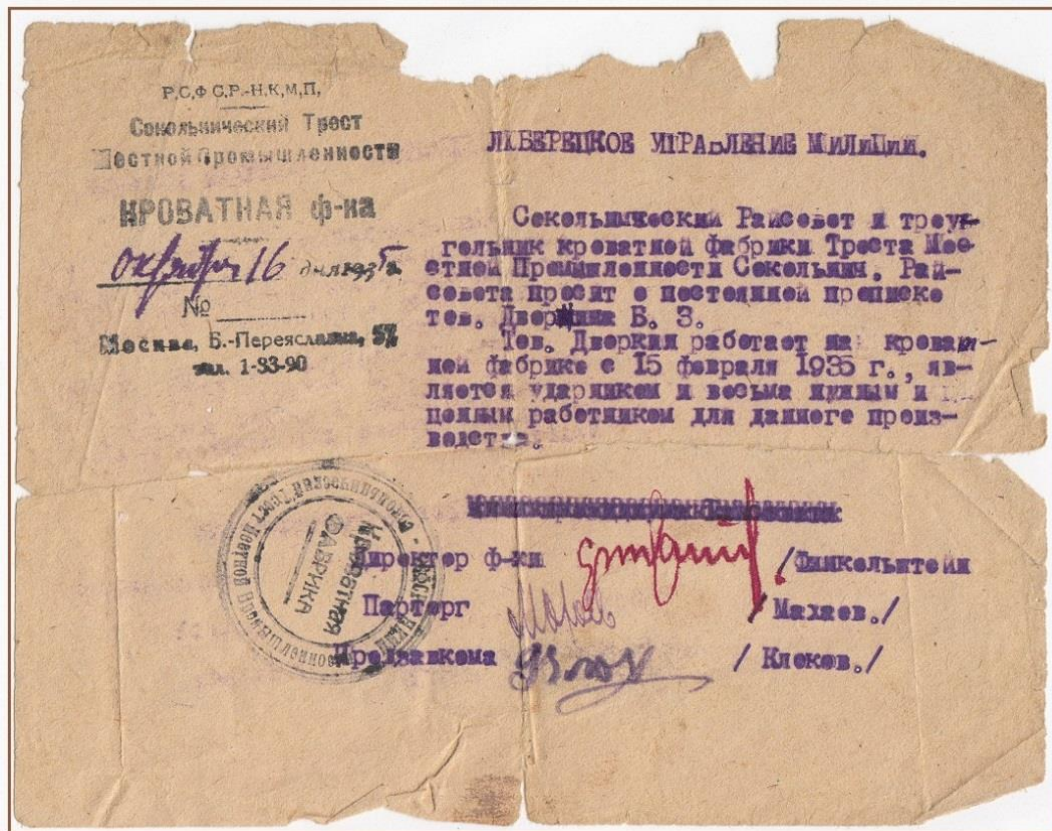 Р.С.Ф.С.Р.-Н.К.М.П.
Сокольнический Трест
Местной Промышленности
КРОВАТНАЯ ф-ка
октября 16 дня 1935 г.
№
Москва, Б.-Переяславка, 57
тел. 1-33-90
ЛЮБЕРЕЦКОЕ УПРАВЛЕНИЕ МИЛИЦИИ.
Сокольнический Райсовет и треу-
гольник кроватной фабрики Треста Мес-
стной Промышленности Сокольнич. Рай-
совета просит о постоянной прописке
тов. Дворкина Б. З.
Тов. Дворкин работает на кроват-
ной фабрике с 15 февраля 1935 г., яв-
ляется ударником и весьма нужным и
ценным работником для данного произ-
водства.
Директор ф-ки /Финкельштейн
Парторг / Махаев./
Предзавкома / Клоков./
КРОВАТНАЯ
ФАБРИКА